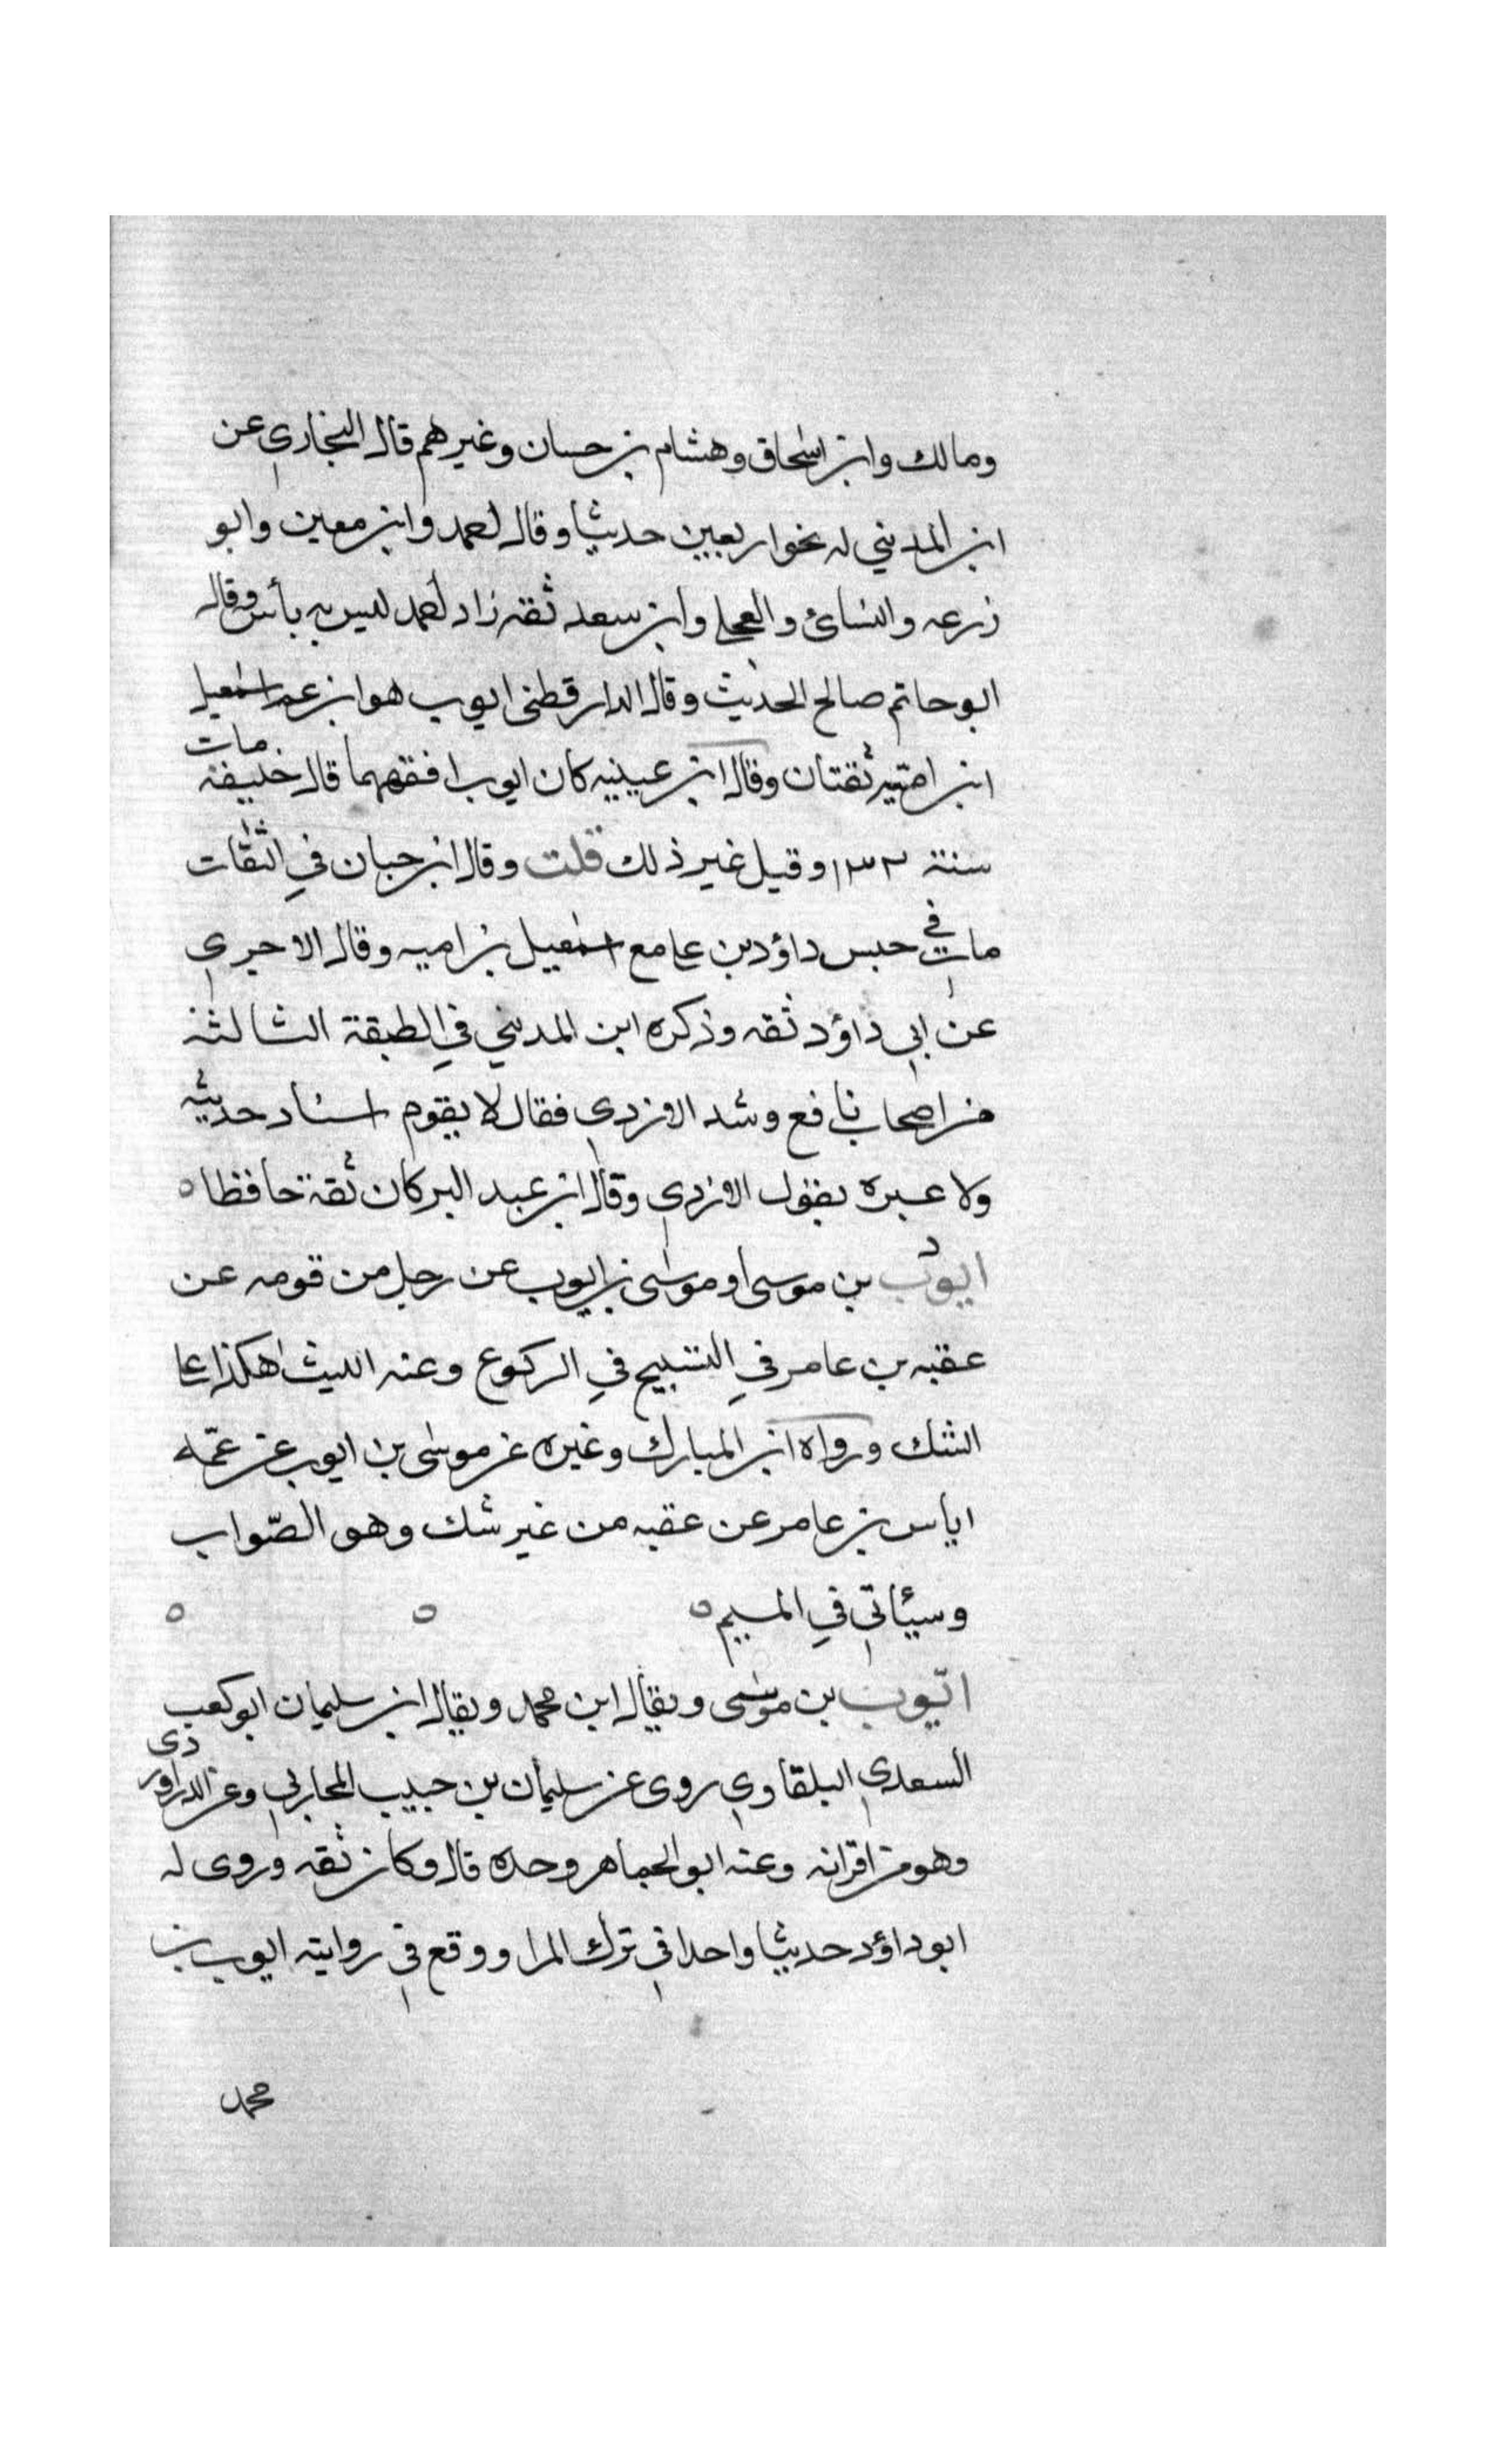 ومالك وابن اسحاق وهشام بن حسان وغيرهم قال البخاري عن
ابن المديني له نحو اربعين حديثا وقال احمد وابن معين وابو
زرعه والنسائ والعجلي وابن سعد ثقه زاد احمد ليس به بأس وقال
ابو حاتم صالح الحديث وقال الدارقطنى ايوب هو ابن عم اسمعيل
ابن امية ثقتان وقال ابن عيينه كان ايوب افقههما قال خليفة مات
سنة ١٣٣ وقيل غير ذلك قلت وقال ابن حبان في الثقات
مات في حبس داؤد بن علي مع اسمعيل بن اميه وقال الاجري
عن ابي داؤد ثقه وذكره ابن المديني في الطبقة الثالثة
من اصحاب نافع وشد الازدي فقال لا يقوم اسناد حديثه
ولا عبره بقول الازدي وقال ابن عبد البر كان ثقة حافظا ه
ايوب بن موسى او موسى بن ايوب عن رجل من قومه عن
عقبه بن عامر في التسبيح في الركوع وعنه الليث هكذا علي
الشك ورواه ابن المبارك وغيره عن موسى بن ايوب عن عمّه
اياس بن عامر عن عقبه من غير شك وهو الصّواب
وسيأتي في الميم ه ه ه
ايّوب بن موسى ويقال ابن محمد ويقال ابن سليمان ابو كعب
السعدي البلقاوي روى عن سليمان بن حبيب المحاربي وعن الدراوردى
وهو من اقرانه وعنه ابو الجماهر وحده قال وكان ثقه وروى له
ابو داؤد حديثا واحدا في ترك المرا ووقع في روايته ايوب بن
محمد